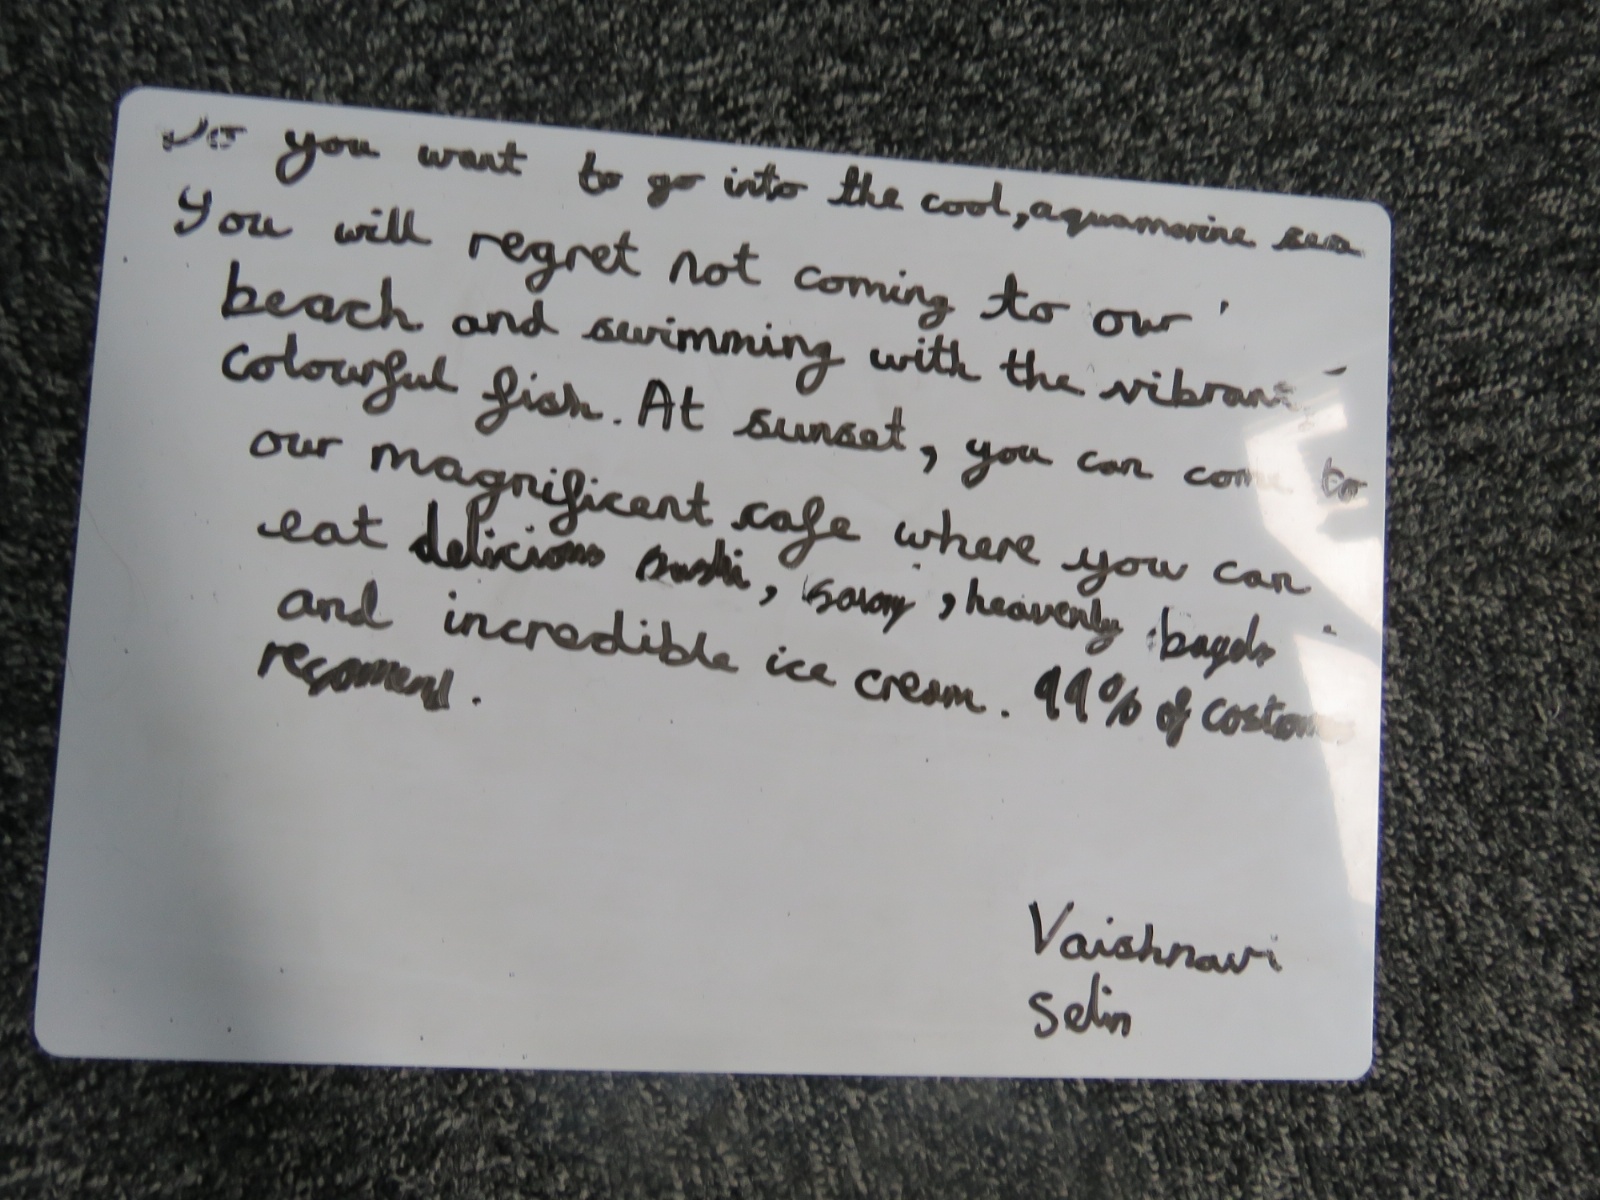 Do you want to go into the cool, aquamarine sea
You will regret not coming to our
beach and swimming with the vibrant,
colourful fish. At sunset, you can come to
our magnificent cafe where you can
eat delicious sushi, , heavenly bagels
and incredible ice cream. 99% of
recomend.
Vaishnavi
Selin